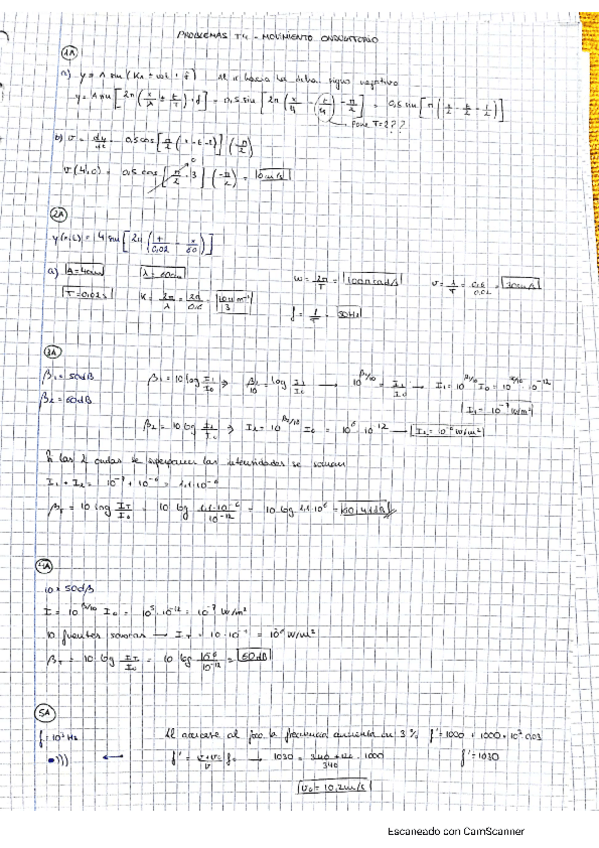 PROBLEMAS T4 - MOVIMIENTO ONDULATORIO
1A
a) y = A sin (Kx + ωt + f) Al ir hacia la dcha. signo negativo
y = A sin [2π(x/λ ± t/T) + f] = 0,5 sin [2π(x/4 - t/4) - π/2] = 0,5 sin [π(x/2 - t/2 - 1/2)]
Pone T=2??
b) v = dy/dt =
v(4,0) =
2A
y(x,t) = 4 sin [2π(t/0,02 - x/60)]
a) A = 4cm λ = 60cm ω = 2π/T = 100π rad/s v = λ/T = 0,6/0,02 = 30m/s
T = 0,02s K = 2π/λ = 2π/0,6 = 10π/3 m⁻¹ f = 1/T = 50Hz
3A
β₁ = 50dB β₁ = 10 log I₁/I₀ ⇒ β₁/10 = log I₁/I₀ → 10^(β₁/10) = I₁/I₀ → I₁ = 10^(β₁/10) I₀ = 10^(50/10) · 10⁻¹²
β₂ = 60dB
I₁ = 10⁻⁷ W/m²
β₂ = 10 log I₂/I₀ ⇒ I₂ = 10^(β₂/10) I₀ = 10⁶ · 10⁻¹² → I₂ = 10⁻⁶ W/m²
Si las 2 ondas se superponen las intensidades se suman
I₁ + I₂ = 10⁻⁷ + 10⁻⁶ = 1,1·10⁻⁶
βT = 10 log IT/I₀ = 10 log 1,1·10⁻⁶/10⁻¹² = 10 log 1,1·10⁶ = 60,41dB
4A
50dB
I = 10^(β/10) I₀ = 10⁵ · 10⁻¹² = 10⁻⁷ W/m²
10 fuentes sonoras → IT = 10 · 10⁻⁷ = 10⁻⁶ W/m²
βT = 10 log IT/I₀ = 10 log 10⁻⁶/10⁻¹² = 60dB
5A
f = 10³ Hz Al acercarse al foco la frecuencia aumenta en 3% f' = 1000 + 1000 · 0,03
f' = v+v₀/v f₀ → 1030 = 340+v₀/340 · 1000 f' = 1030
v₀ = 10,2m/s
Escaneado con CamScanner